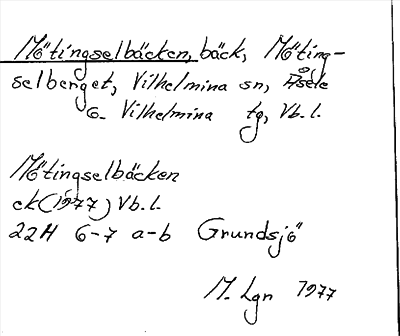 Mötingselbäcken, bäck, Möting-
selberget, Vilhelmina sn, Åsele
G. Vilhelmina tg, Vb.l.
Mötingselbäcken
ek (1977) Vb.l.
22H 6-7 a-b Grundsjö
M. Lgn 1977